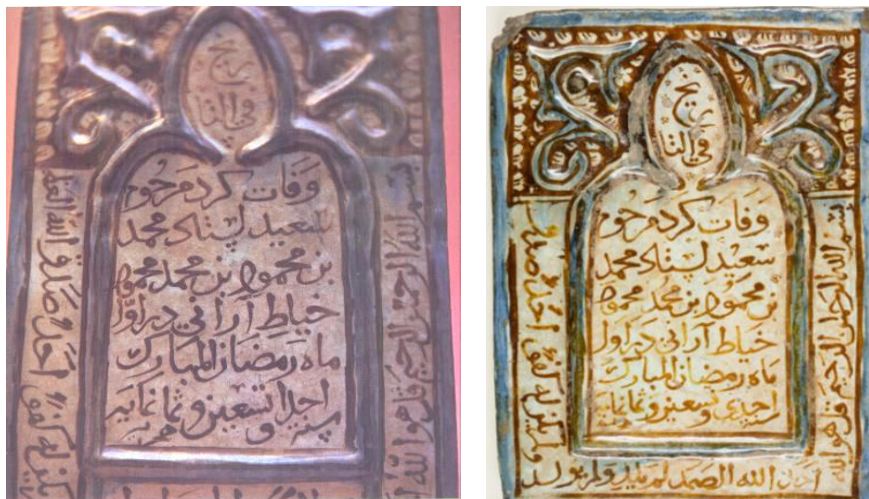 ریخ
فی التا
وفات کرد مرحوم
سعید استاد محمد
بن محمود بن محمد محمود
خیاط آرانی در اول
ماه رمضان المبارک
احدی وتسعین وثمانمایه
بسم الله الرحمن الرحیم قل هو الله
یکن له کفوا احد صدق الله
ریخ
فی التا
وفات کرد مرحوم
سعید استاد محمد
بن محمود بن محمد محمود
خیاط آرانی در اول
ماه رمضان المبارک
احدی وتسعین وثمانمایه
بسم الله الرحمن الرحیم قل هو الله
احد الله الصمد لم یلد ولم یولد
ولم یکن له کفوا احد صدق